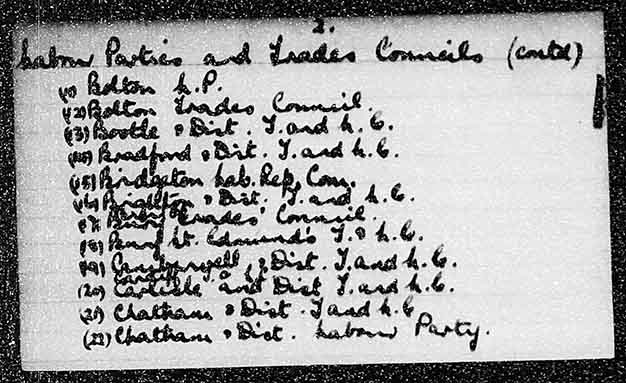 2.
Labour Parties and Trades Councils (contd)
(11) Bolton L.P.
(12) Bolton Trades Council.
(13) Bootle & Dist. T. and L. C.
(14) Bradford & Dist. T. and L. C.
(15) Bridgeton Lab. Rep. Com.
(16) Brighton & Dist. T. and L. C.
(17) Bury Trades Council.
(18) Bury St. Edmund's T. & L. C.
(19) Camberwell & Dist. T. and L. C.
(20) Carlisle and Dist T. and L. C.
(21) Chatham & Dist. T and L. C
(22) Chatham & Dist. Labour Party.